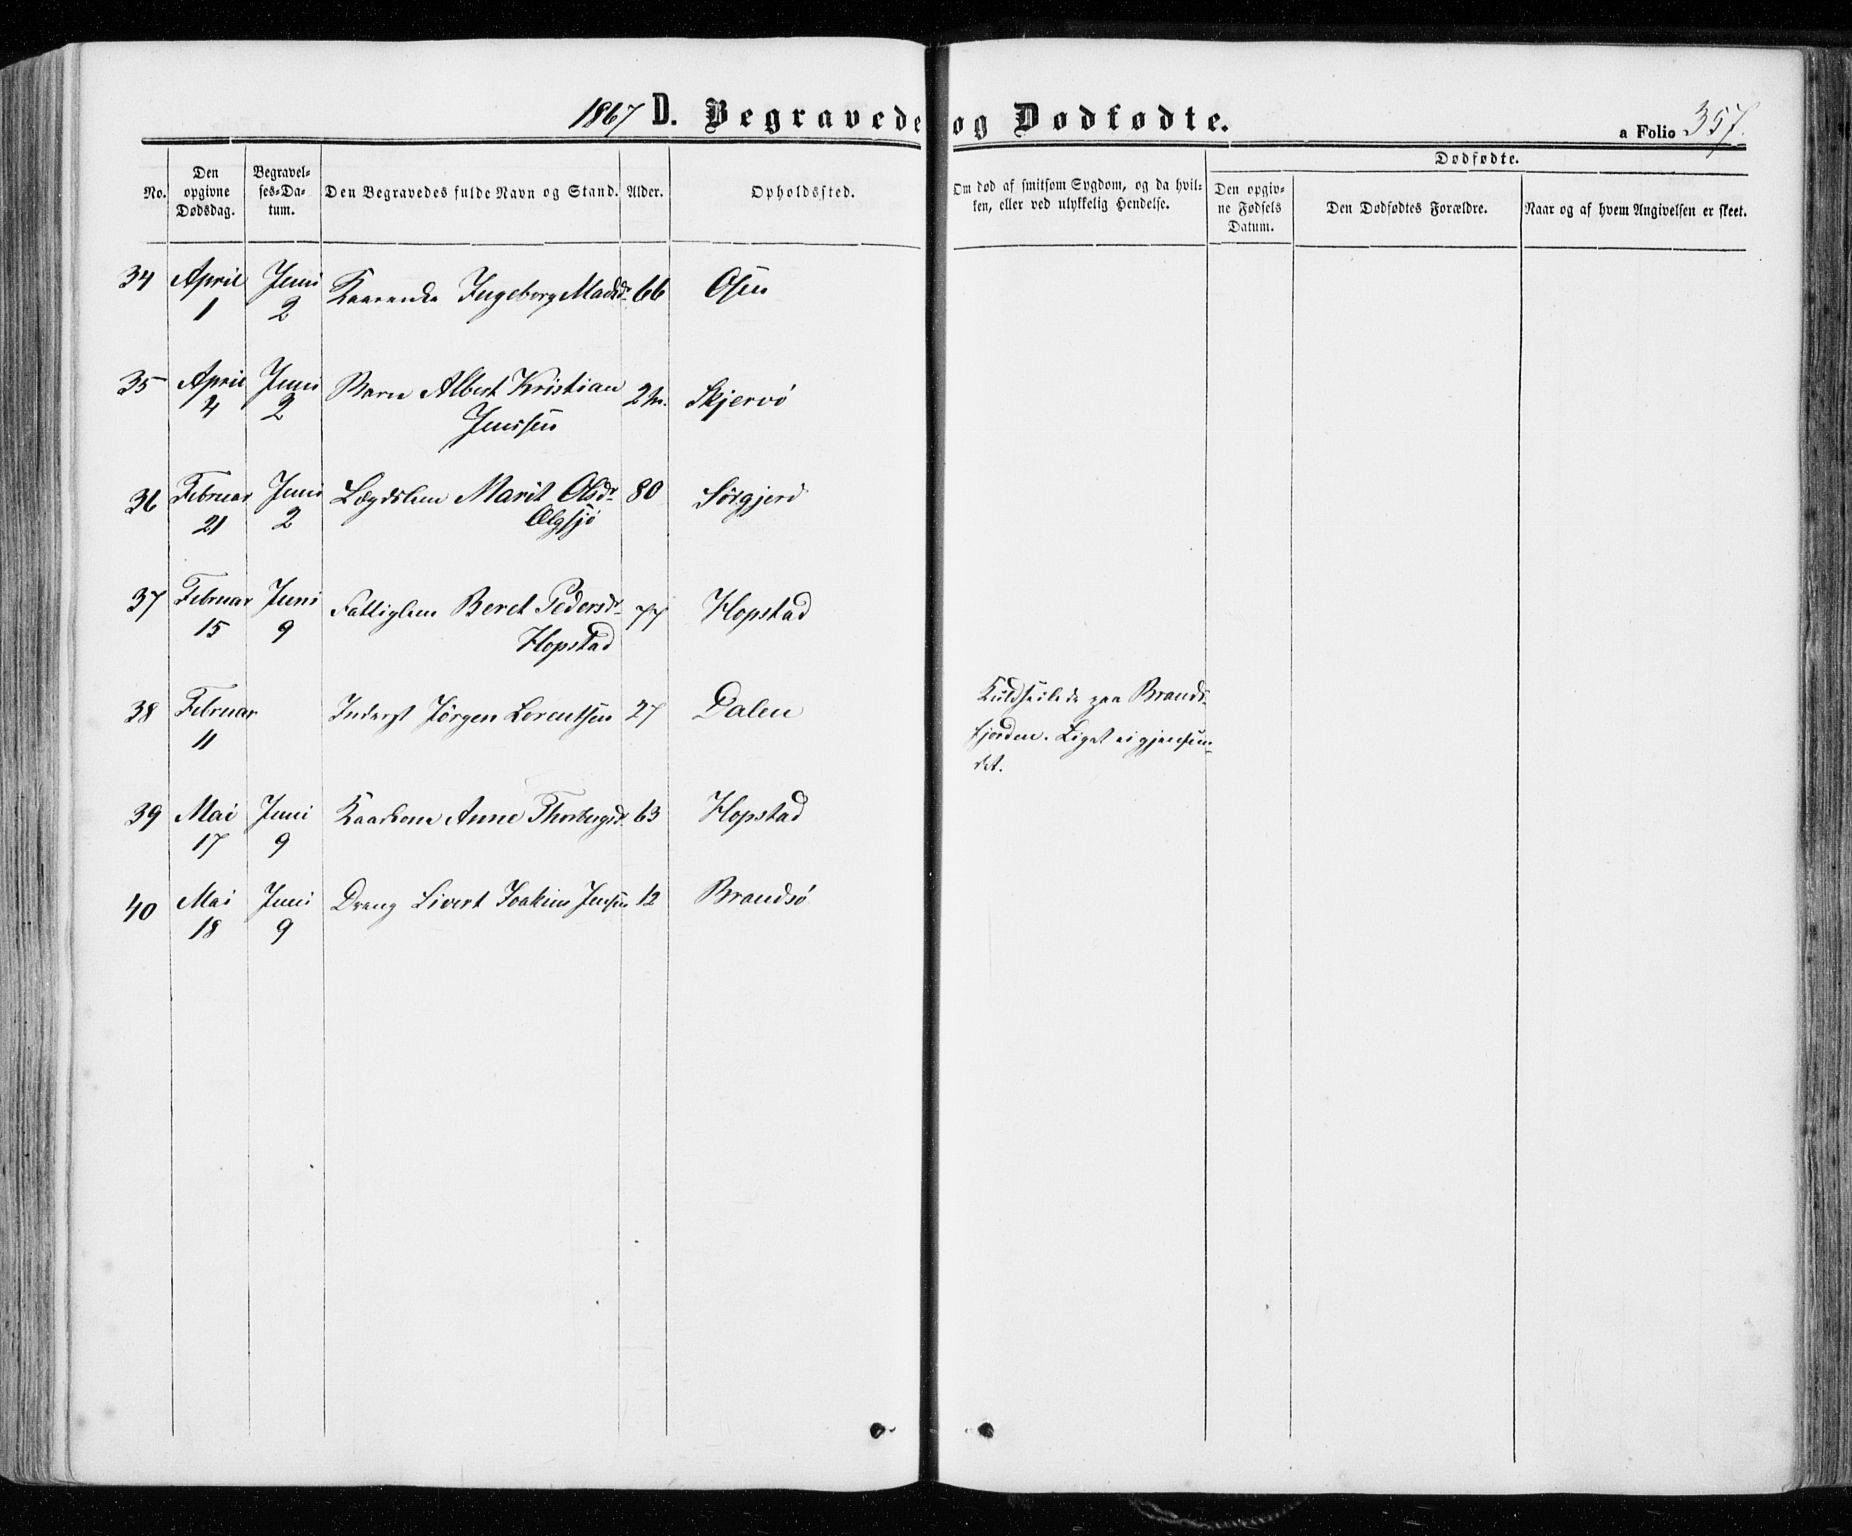 1867 D. Begravede og Dødfødte. a Folio 357.
No. Den opgivne Dødsdag. Begravel-ses-Da-tum. Den Begravedes fulde Navn og Stand. Alder. Opholdssted. Om død af smitsom Sygdom, og da hvil-ken, eller ved ulykkelig Hendelse. Dødfødte. Den opgiv-ne Fødsels Datum. Den Dødfødtes Forældre. Naar og af hvem Angivelsen er skeet.
34 April 1 Juni 2 Ingeborg Madsdr. 66 Osen
35 April 4 Juni 2 Barn Albert Kristian 2 M. Skjervö
Jenssen
36 Februar 21 Juni 2 Lægdslem Marit Olsdr. 80 Sörgjerd
Ælgsjö
37 Februar 15 Juni 9 Fattiglem Beret Pedersdr. 77 Hopstad
Hopstad
38 Februar 11 Inderst Jörgen Lorentsen 27 Dalen Kuldseilede paa Brands-
fjorden. Liget ei gjenfun-
det.
39 Mai 17 Juni 9 Kaarkone Anne Thorbergsdr. 63 Hopstad
40 Mai 18 Juni 9 Dreng Sivert Joakim Jensen 12 Brandsö